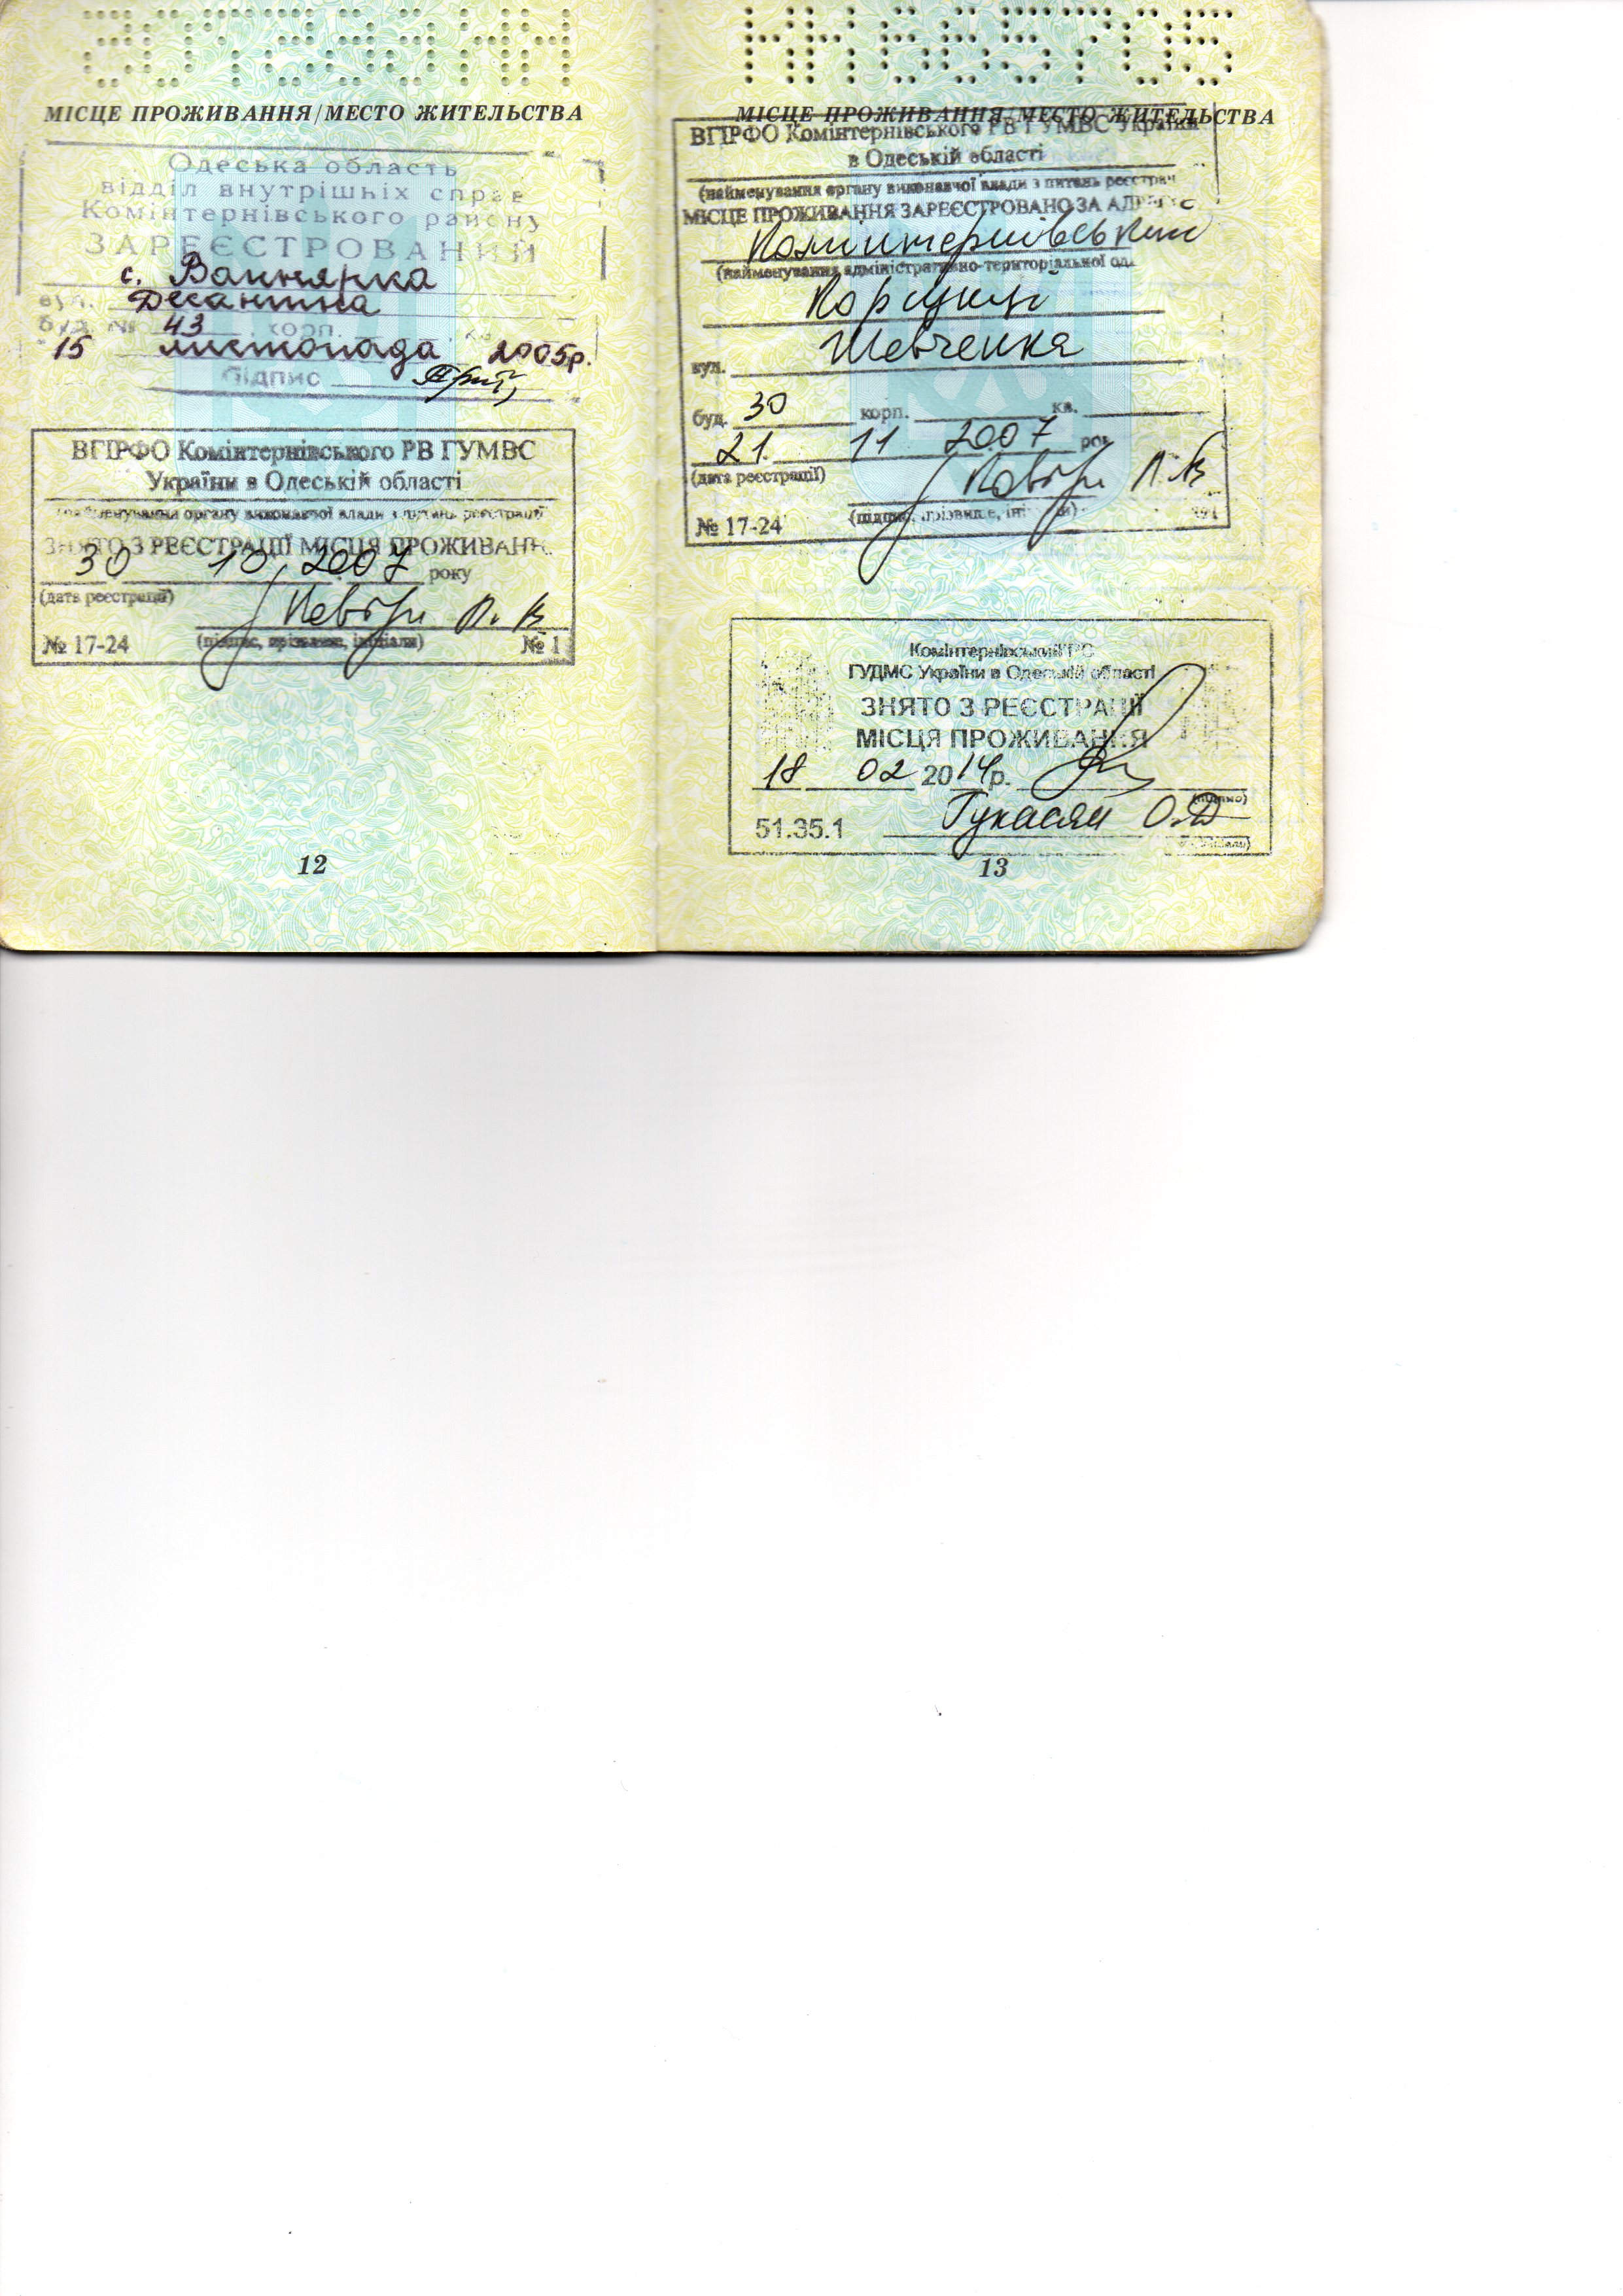 МІСЦЕ ПРОЖИВАННЯ/МЕСТО ЖИТЕЛЬСТВА
Одеська область
відділ внутрішніх справ
Комінтернівського району
ЗАРЕЄСТРОВАНИЙ
с. Ваннярка
вул. Десантна
буд. № 43 корп. кв.
15 листопада 2005р.
підпис
ВГІРФО Комінтернівського РВ ГУМВС
України в Одеській області
(найменування органу виконавчої влади з питань реєстрації)
ЗНЯТО З РЕЄСТРАЦІЇ МІСЦЯ ПРОЖИВАНН
30 10 2007 року
(дата реєстрації)
(підпис, прізвище, ініціали)
№ 17-24 № 1
12
НН 685705
МІСЦЕ ПРОЖИВАННЯ/МЕСТО ЖИТЕЛЬСТВА
ВГІРФО Комінтернівського РВ ГУМВС України
в Одеській області
(найменування органу виконавчої влади з питань реєстрац
МІСЦЕ ПРОЖИВАННЯ ЗАРЕЄСТРОВАНО ЗА АДРЕС
Комінтернівський
(найменування адміністративно-територіальної од
Корсунці
вул. Шевченка
буд. 30 корп. кв.
21. 11 2007 рок
(дата реєстрації)
(підпис, прізвище, ініціали)
№ 17-24
Комінтернівський РС
ГУДМС України в Одеській області
ЗНЯТО З РЕЄСТРАЦІЇ
МІСЦЯ ПРОЖИВАННЯ
18 02 2014р.
(підпис)
Гукасян О.Д
51.35.1
13